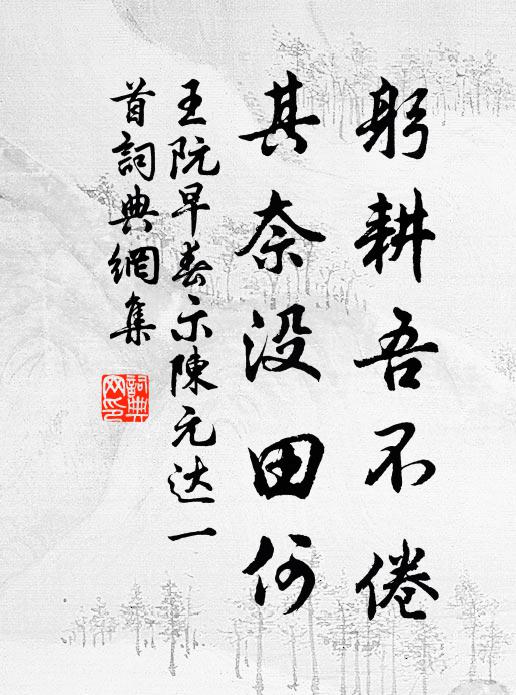 躬耕吾不倦
其奈没田何
王阮早春示陳元达一
首詞典網集
詞典
网印